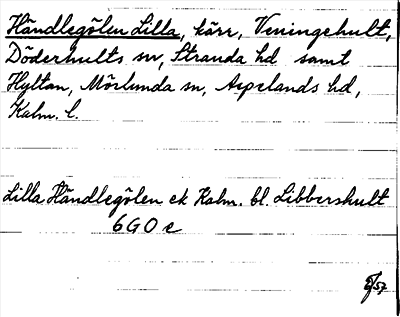 Händlegölen Lilla, kärr, Veningehult,
Döderhults sn, Stranda hd samt
Hyltan, Mörlunda sn, Aspelands hd,
Kalm. l.
Lilla Händlegölen ek Kalm. bl. Libbershult
6G0c
57